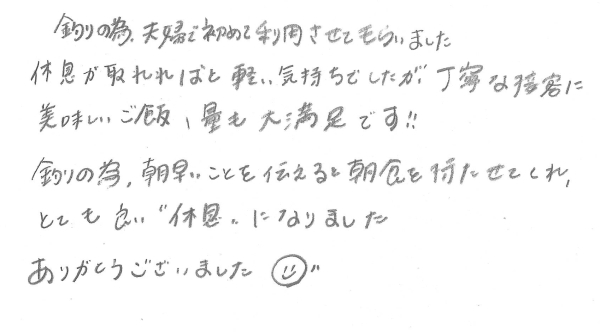 釣りの為、夫婦で初めて利用させてもらいました
休息が取れればと軽い気持ちでしたが丁寧な接客に
美味しいご飯、量も大満足です!!
釣りの為、朝早いことを伝えると朝食を持たせてくれ、
とても良い“休息„になりました
ありがとうございました